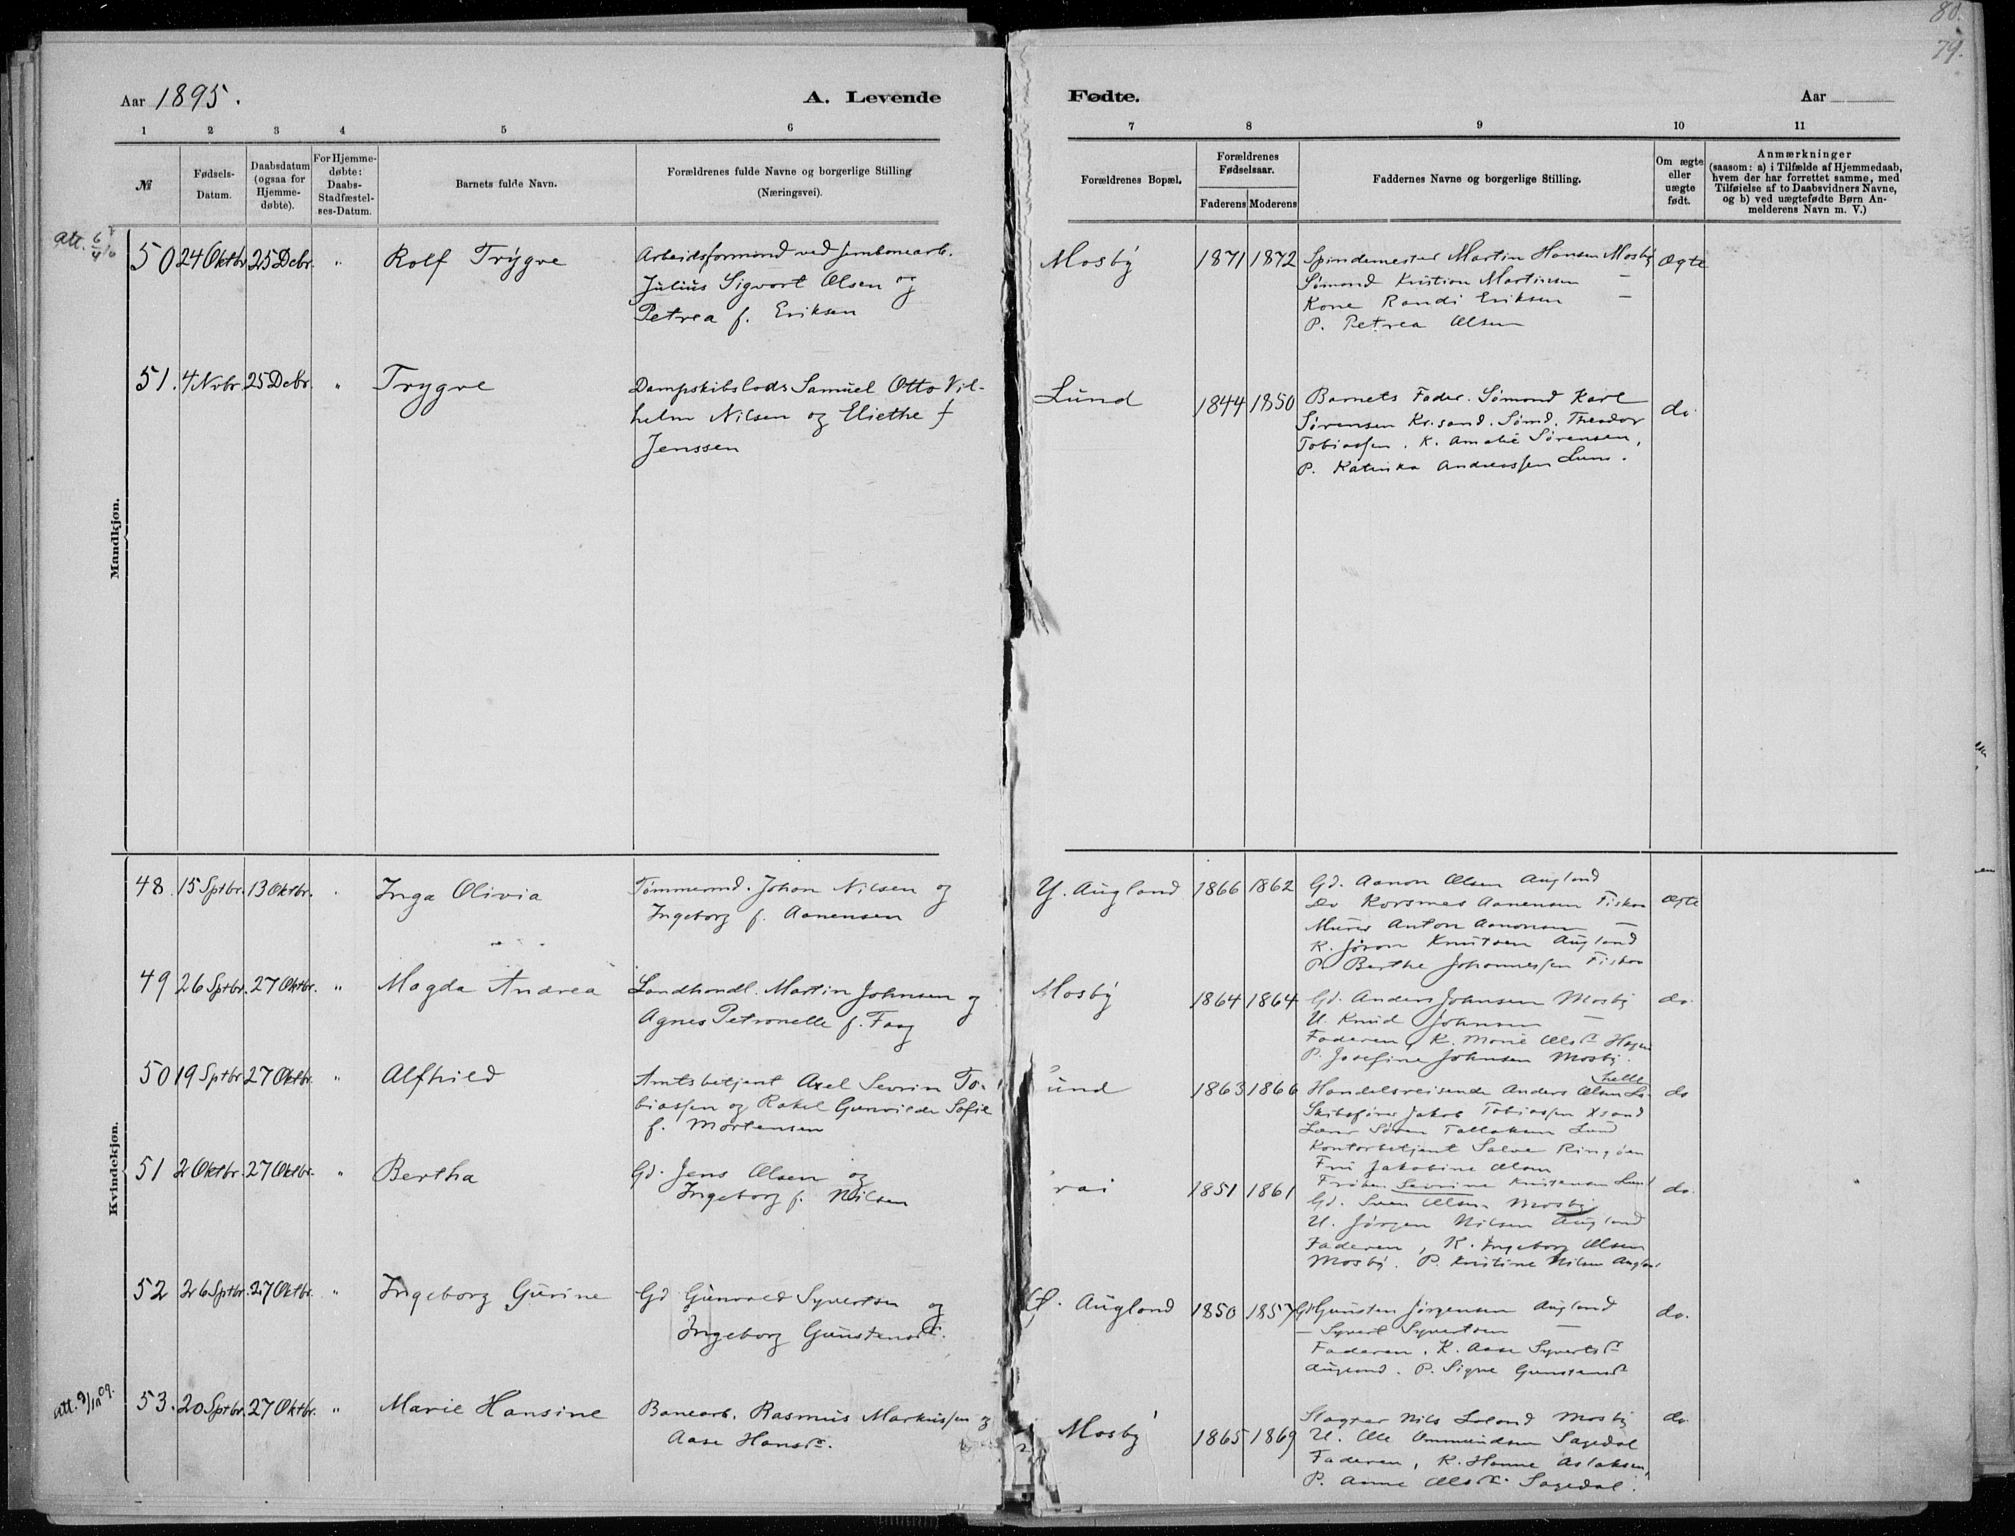 80.
79.
Aar 1895.
A. Levende
Fødte.
Aar
1 2 3 4 5 6
7 8 9 10 11
№
Fødsels-
Datum.
Daabsdatum
(ogsaa for
Hjemme-
døbte).
For Hjemme-
døbte:
Daabs-
Stadfæstel-
ses-Datum.
Barnets fulde Navn.
Forældrenes fulde Navne og borgerlige Stilling
(Næringsvei).
Forældrenes Bopæl.
Forældrenes
Fødselsaar.
Faderens Moderens
Faddernes Navne og borgerlige Stilling.
Om ægte
eller
uægte
født.
Anmærkninger
(saasom: a) i Tilfælde af Hjemmedaab,
hvem der har forrettet samme, med
Tilføielse af to Daabsvidners Navne,
og b) ved uægtefødte Børn An-
melderens Navn m. V.)
Mandkjøn.
att.
50 24 Oktbr. 25 Decbr. " Rolf Trygve
Arbeidsformand ved Jernbanearb.
Julius Sigvart Olsen og
Petrea f. Eriksen
Mosby 1871 1872
Spindemester Martin Hansen Mosby
Sømand Kristian Martinsen —
Kone Randi Eriksen —
P. Petrea Olsen
Ægte
51. 4 Nvbr. 25 Decbr. " Trygve
Dampskibslods Samuel Otto Vil-
helm Nilsen og Eliethe f
Jenssen
Lund 1844 1850
Barnets Fader. Sømand Karl
Sørensen Kr.sand. Sømd. Theodor
Tobiassen. K. Amalie Sørensen,
P. Katinka Andreassen Lund.
do.
Kvindekjøn.
48. 15 Sptbr. 13 Oktbr. " Inga Olivia
Tømmermd. Johan Nilsen og
Ingeborg f. Aanensen
Y. Augland 1866 1862
Gd. Aanon Olsen Augland
Do Aanensen
Murer Anton Aanonsen —
K. Jøran Knutsen Augland
P. Berthe Johannessen
Ægte
49 26 Sptbr. 27 Oktbr. " Magda Andrea
Landhandl. Martin Johnsen og
Agnes Petronelle f. Faag
Mosby 1864 1864
Gd. Anders Johnsen Mosby
U. Knud Johnsen —
Faderen, K. Marie Olsdr
P. Josefine Johnsen Mosby.
do.
50 19 Sptbr. 27 Oktbr. " Alfhild
Amtsbetjent Axel Sevrin To-
biassen og Rakel Gunvilde Sofie
f. Mortensen
und 1863 1866
Handelsreisende Anders Olsen
Skibsfører Jakob Tobiassen Xsand
Lærer Søren Tallaksen Lund
Kontorbetjent Salve Ringøen
Fru Jakobine Olsen
Frøken Sevrine Knutsen Lund
do
51 2 Oktbr. 27 Oktbr. " Bertha
Gd. Jens Olsen og
Ingeborg f. Nilsen
rai 1851 1861
Gd. Sven Olsen Mosby
U. Jørgen Nilsen Augland
Faderen, K. Ingeborg Olsen
Mosby. P. Kristine Nilsen Augland
do.
52 26 Sptbr. 27 Oktbr. " Ingeborg Gurine
Gd Gunvald Syvertsen og
Ingeborg Gunstensdr.
Ø. Augland 1850 1857
Gd Gunsten Jørgensen Augland
— Syvert Syvertsen —
Faderen, K. Aase Syvertsdr
Augland. P. Signe Gunstensdr
do.
att. 9/10 09.
53. 20 Sptbr. 27 Oktbr. " Marie Hansine
Banearb. Rasmus Markussen og
Aase Hansdr.
Mosby 1865 1869
Slagter Nils Loland Mosby
U. Ole Ommundsen Sagedal
Faderen, K. Hanne Aslaksen,
P. Anne Olsdr Sagedal.
do.